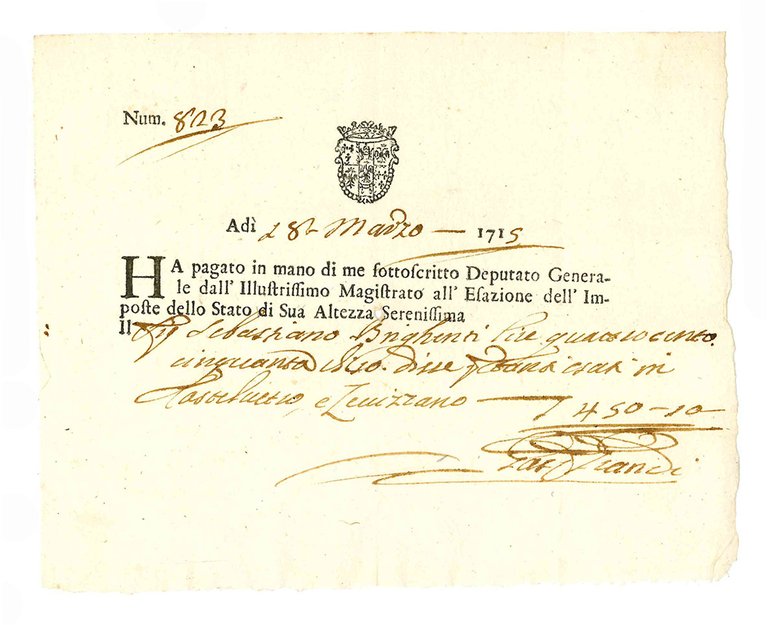 Num. 823
Adì 28 Marzo 1715
HA pagato in mano di me sottoscritto Deputato Genera-
le dall' Illustrissimo Magistrato all' Esazione dell' Im-
poste dello Stato di Sua Altezza Serenissima
Il Sig Sebastiano Brighenti lire quattrocento
cinquanta in
e Levizzano 450-10